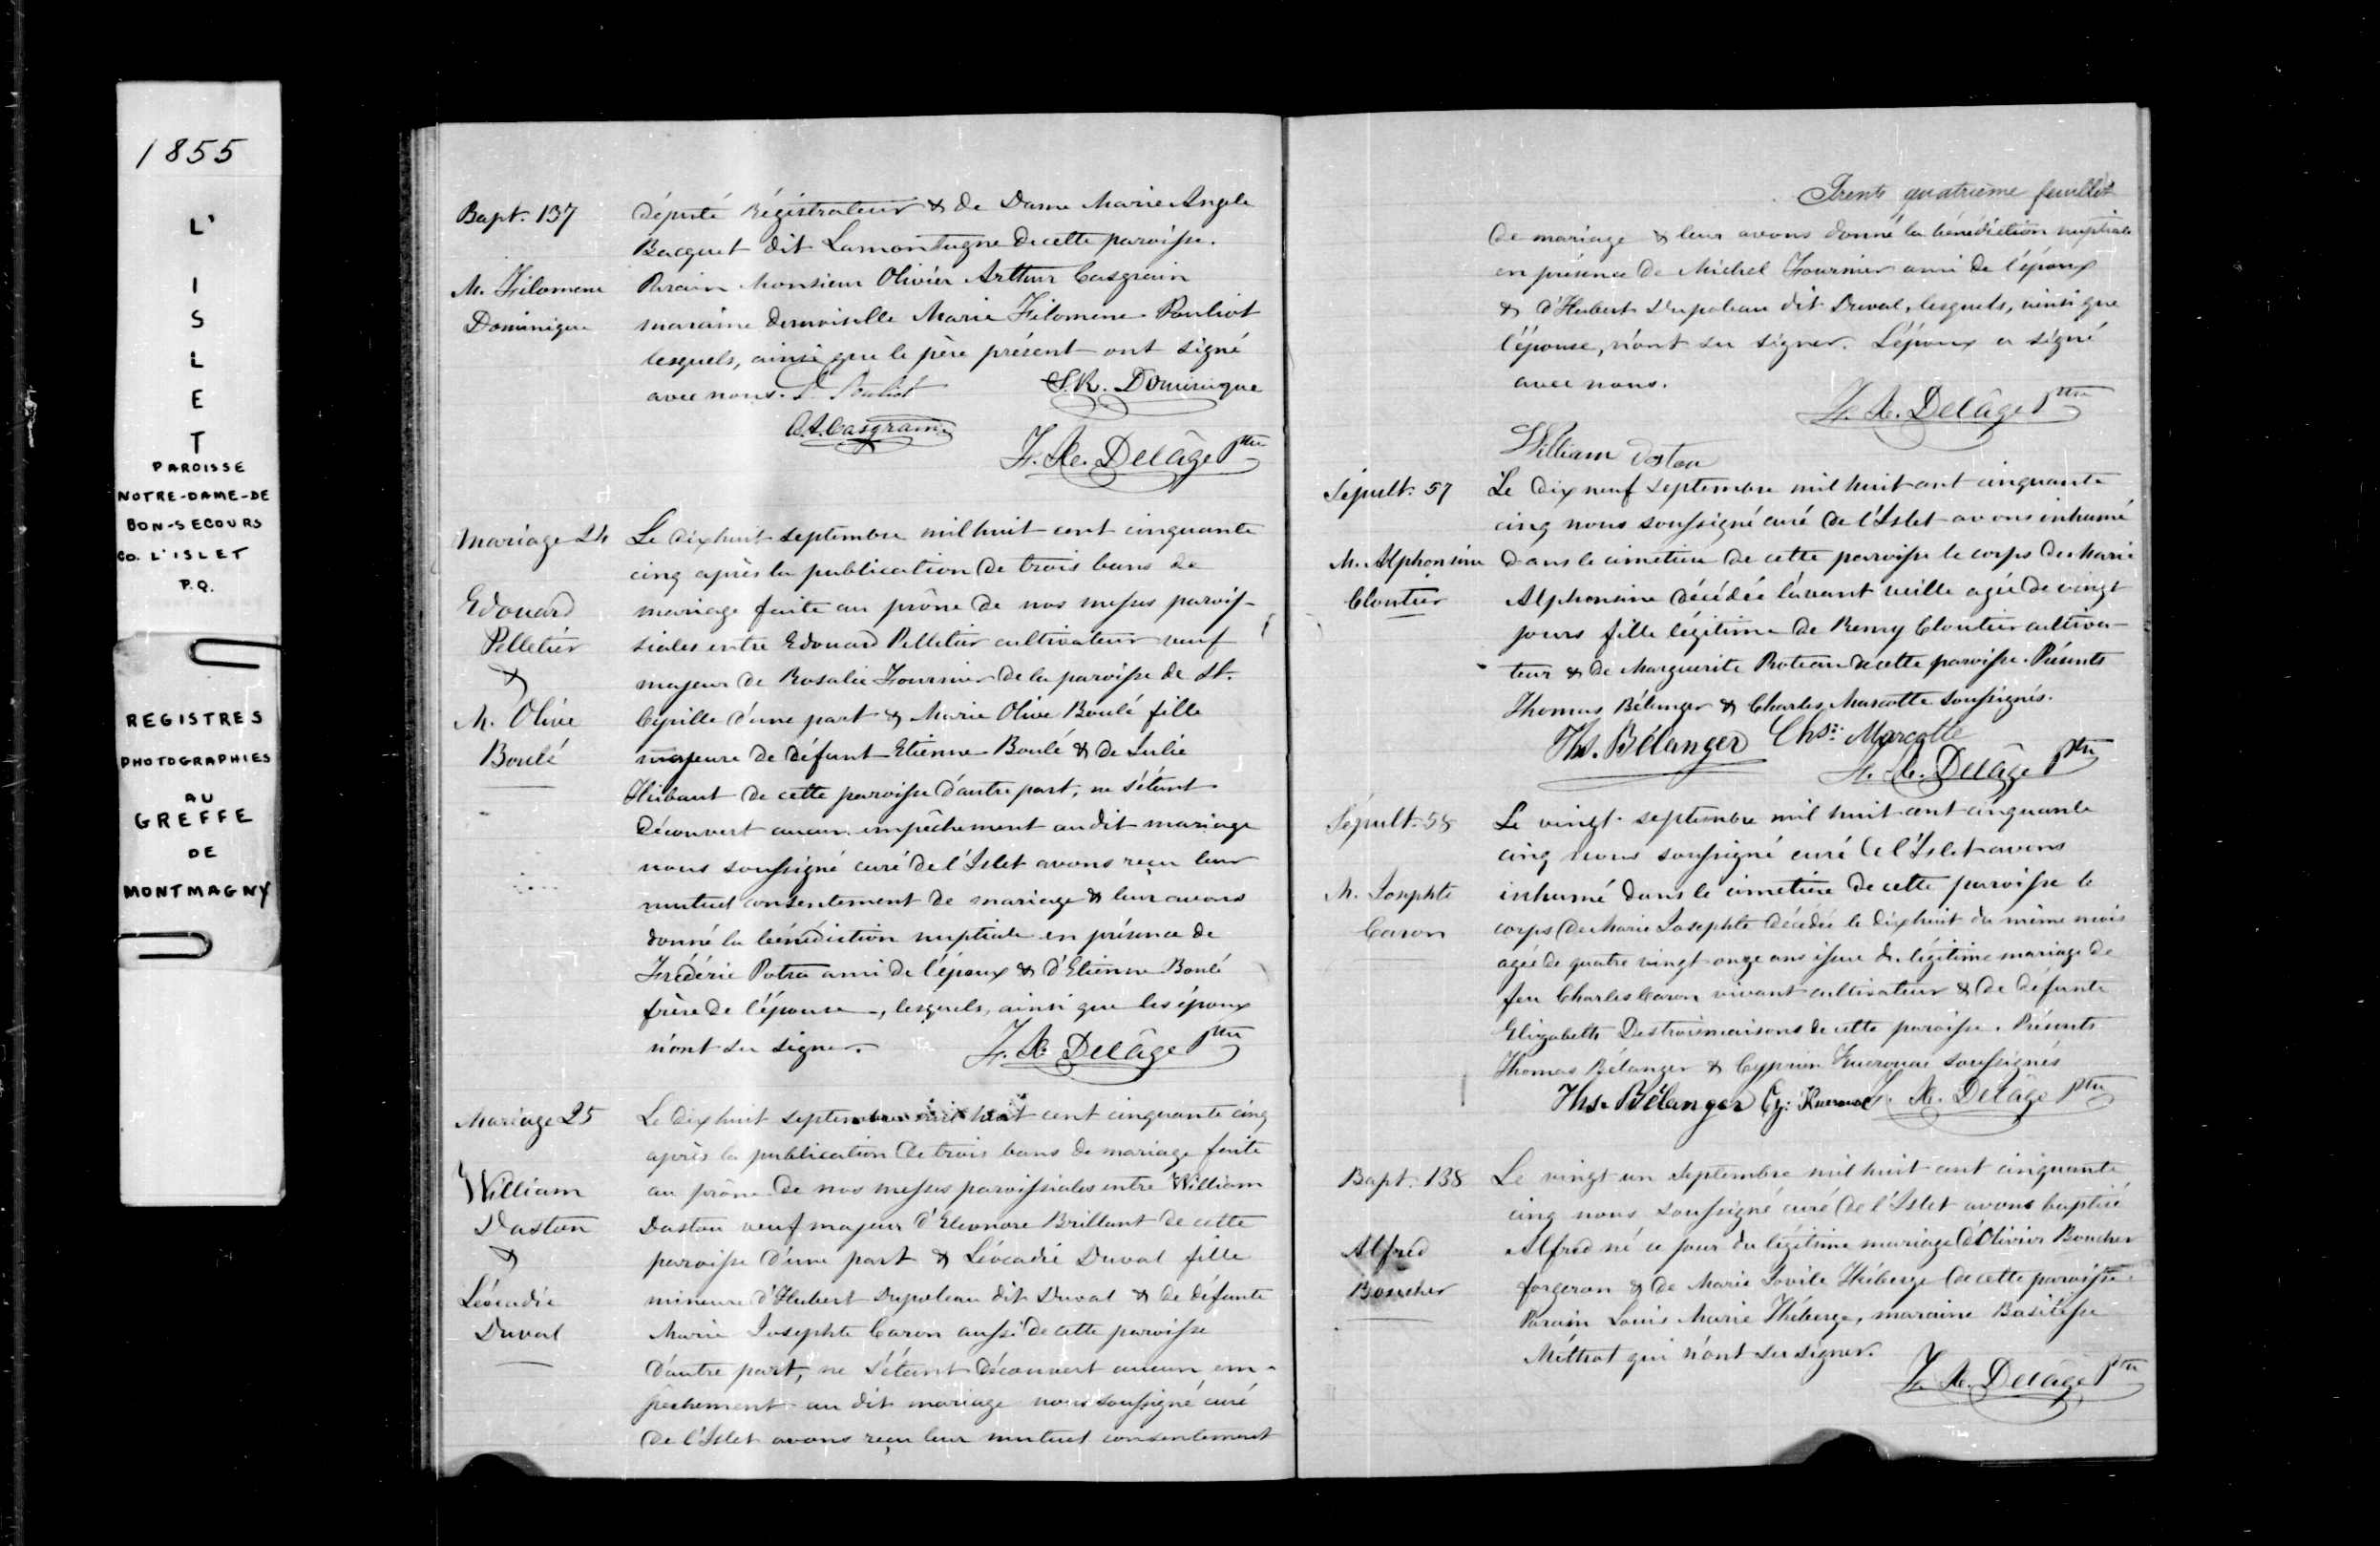 1855
L'
I
S
L
E
T
PAROISSE
NOTRE-DAME-DE
BON-SECOURS
CO. L'ISLET
P.Q.
REGISTRES
PHOTOGRAPHIES
AU
GREFFE
DE
MONTMAGNY
Bapt. 137
M. Filomene
Dominique
député Régistrateur & de Dame Marie Angele
Bacquet dit Lamontagne de cette paroisse.
Parain Monsieur Olivier Arthur Casgrain
maraine demoiselle Marie Filomene Pouliot
lesquels, ainsi que le père présent ont signé
avec nous. P. Pouliot
S.R. Dominique
O.A. Casgrain
F. X. Delâge Ptre
Mariage 24
Edouard
Pelletier
&
M. Olive
Boulé
Le dixhuit septembre mil huit cent cinquante
cinq après la publication de trois bans de
mariage faite au prône de nos messes parois-
siales entre Edouard Pelletier cultivateur veuf
majeur de Rosalie Fournier de la paroisse de St.
Cyrille d'une part & Marie Olive Boulé fille
majeure de défunt Etienne Boulé & de Julie
Thibaut de cette paroisse d'autre part, ne s'étant
découvert aucun empêchement au dit mariage
nous soussigné curé de l'Islet avons reçu leur
mutuel consentement de mariage & leur avons
donné la bénédiction nuptiale en présence de
Frédéric Potra ami de l'époux & d'Etienne Boulé
frère de l'épouse, lesquels, ainsi que les époux
n'ont su signer.
F. X. Delâge Ptre
Mariage 25
William
Dastou
&
Léocadie
Duval
Le dixhuit septembre mil huit cent cinquante cinq
après la publication de trois bans de mariage faite
au prône de nos messes paroissiales entre William
Dastou veuf majeur d'Eleonore Brillant de cette
paroisse d'une part & Léocadie Duval fille
mineure d'Hubert Dupoleau dit Duval & de défunte
Marie Josephte Caron aussi de cette paroisse
d'autre part, ne s'étant découvert aucun em-
pêchement au dit mariage nous soussigné curé
de l'Islet avons reçu leur mutuel consentement
Trente quatrième feuillet
de mariage & leur avons donné la bénédiction nuptiale
en présence de Michel Fournier ami de l'époux
& d'Hubert Dupoleau dit Duval, lesquels, ainsi que
l'épouse, n'ont su signer. L'époux a signé
avec nous.
F. X. Delâge Ptre
William Dastou
Sépult. 57
M. Alphonsine
Cloutier
Le dix neuf septembre mil huit cent cinquante
cinq nous soussigné curé de l'Islet avons inhumé
dans le cimetière de cette paroisse le corps de Marie
Alphonsine décédée l'avant veille agée de vingt
jours fille légitime de Remy Cloutier cultiva-
teur & de Marguerite Proteau de cette paroisse. Présents
Thomas Bélanger & Charles Marcotte soussignés.
Ths. Bélanger Chs: Marcotte
F. X. Delâge Ptre
Sépult. 58
M. Josephte
Caron
Le vingt septembre mil huit cent cinquante
cinq nous soussigné curé de l'Islet avons
inhumé dans le cimetière de cette paroisse le
corps de Marie Josephte décédée le dixhuit du même mois
agée de quatre vingt onze ans issue du légitime mariage de
feu Charles Caron vivant cultivateur & de défunte
Elizabeth Destroismaisons de cette paroisse. Présents
Thomas Bélanger & Cyprien Kuerouac soussignés
Ths. Bélanger Cy: Kuerouac F. X. Delâge Ptre
Bapt. 138
Alfred
Boucher
Le vingt un septembre mil huit cent cinquante
cinq nous soussigné curé de l'Islet avons baptisé
Alfred né ce jour du légitime mariage d'Olivier Boucher
forgeron & de Marie Lovile Théberge de cette paroisse
Parain Louis Marie Théberge, maraine Basilisse
Méthot qui n'ont su signer.
F. X. Delâge Ptre